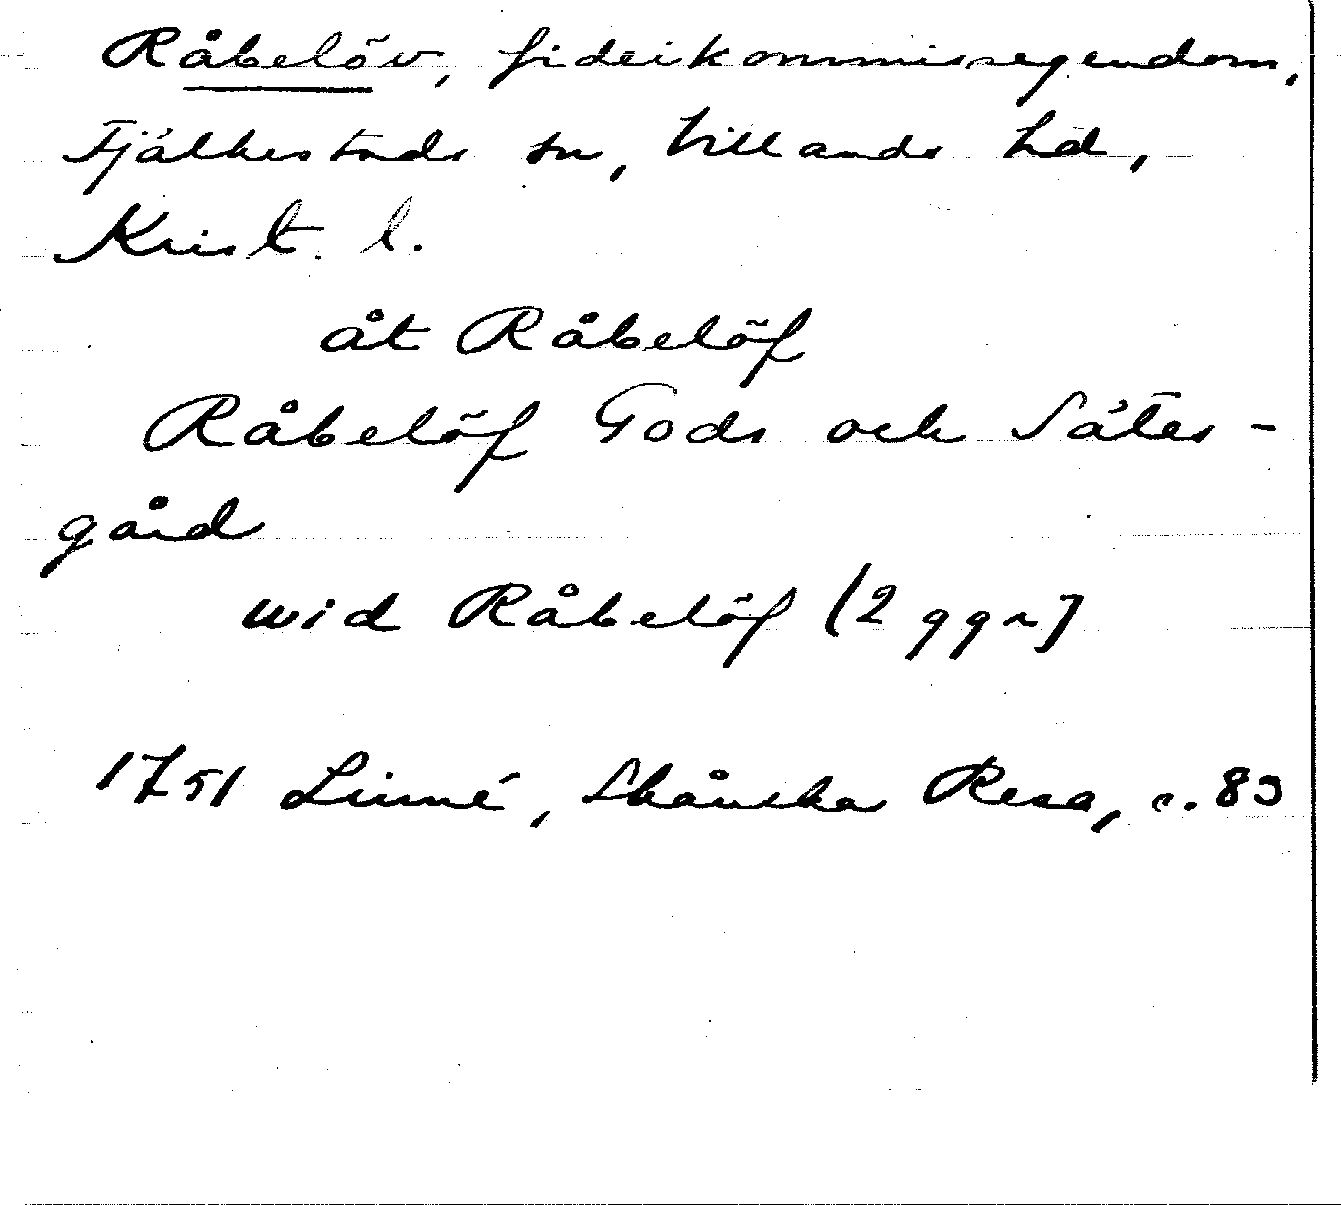 Råbelöv, fideikommissegendom,
Fjälkestads sn, Villands hd,
Krist. l.
åt Råbelöf
Råbelöf Gods och Säter-
gård
wid Råbelöf (2 ggr)
1751 Linné, Skånska Resa, s. 83